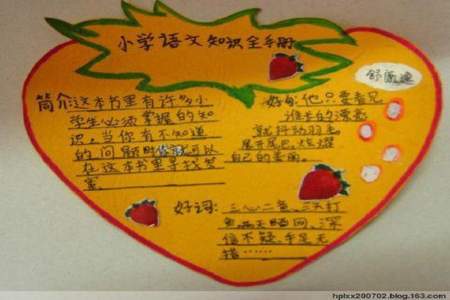 小学语文知识全手册
简介:这本书里有许多小
学生必须掌握的知
识。当你有不知道
的问题时你就可以
在这本书里寻找答
案。
好句:他只要看见
谁羊的漂亮
就抖动羽毛
展开尾巴,炫耀
自己的美丽。
好词:三心二意、三天打
鱼两天晒网、深
信不疑、手足无
措……
hplxx200702.blog.163.com